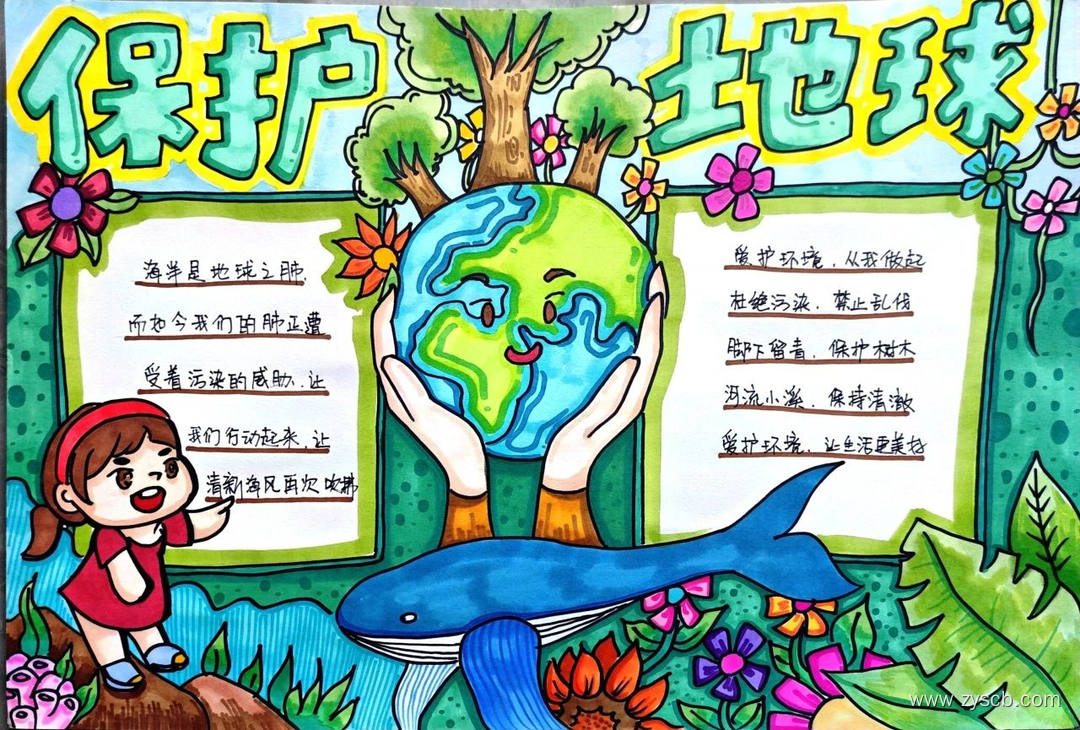 保护地球
海洋是地球之肺
而如今我们的肺正遭
受着污染的威胁.让
我们行动起来,让
清新海风再次吹拂
爱护环境,从我做起
杜绝污染.禁止乱伐
脚下留青,保护树木
河流小溪,保持清澈
爱护环境,让生活更美好
www.zyscb.com